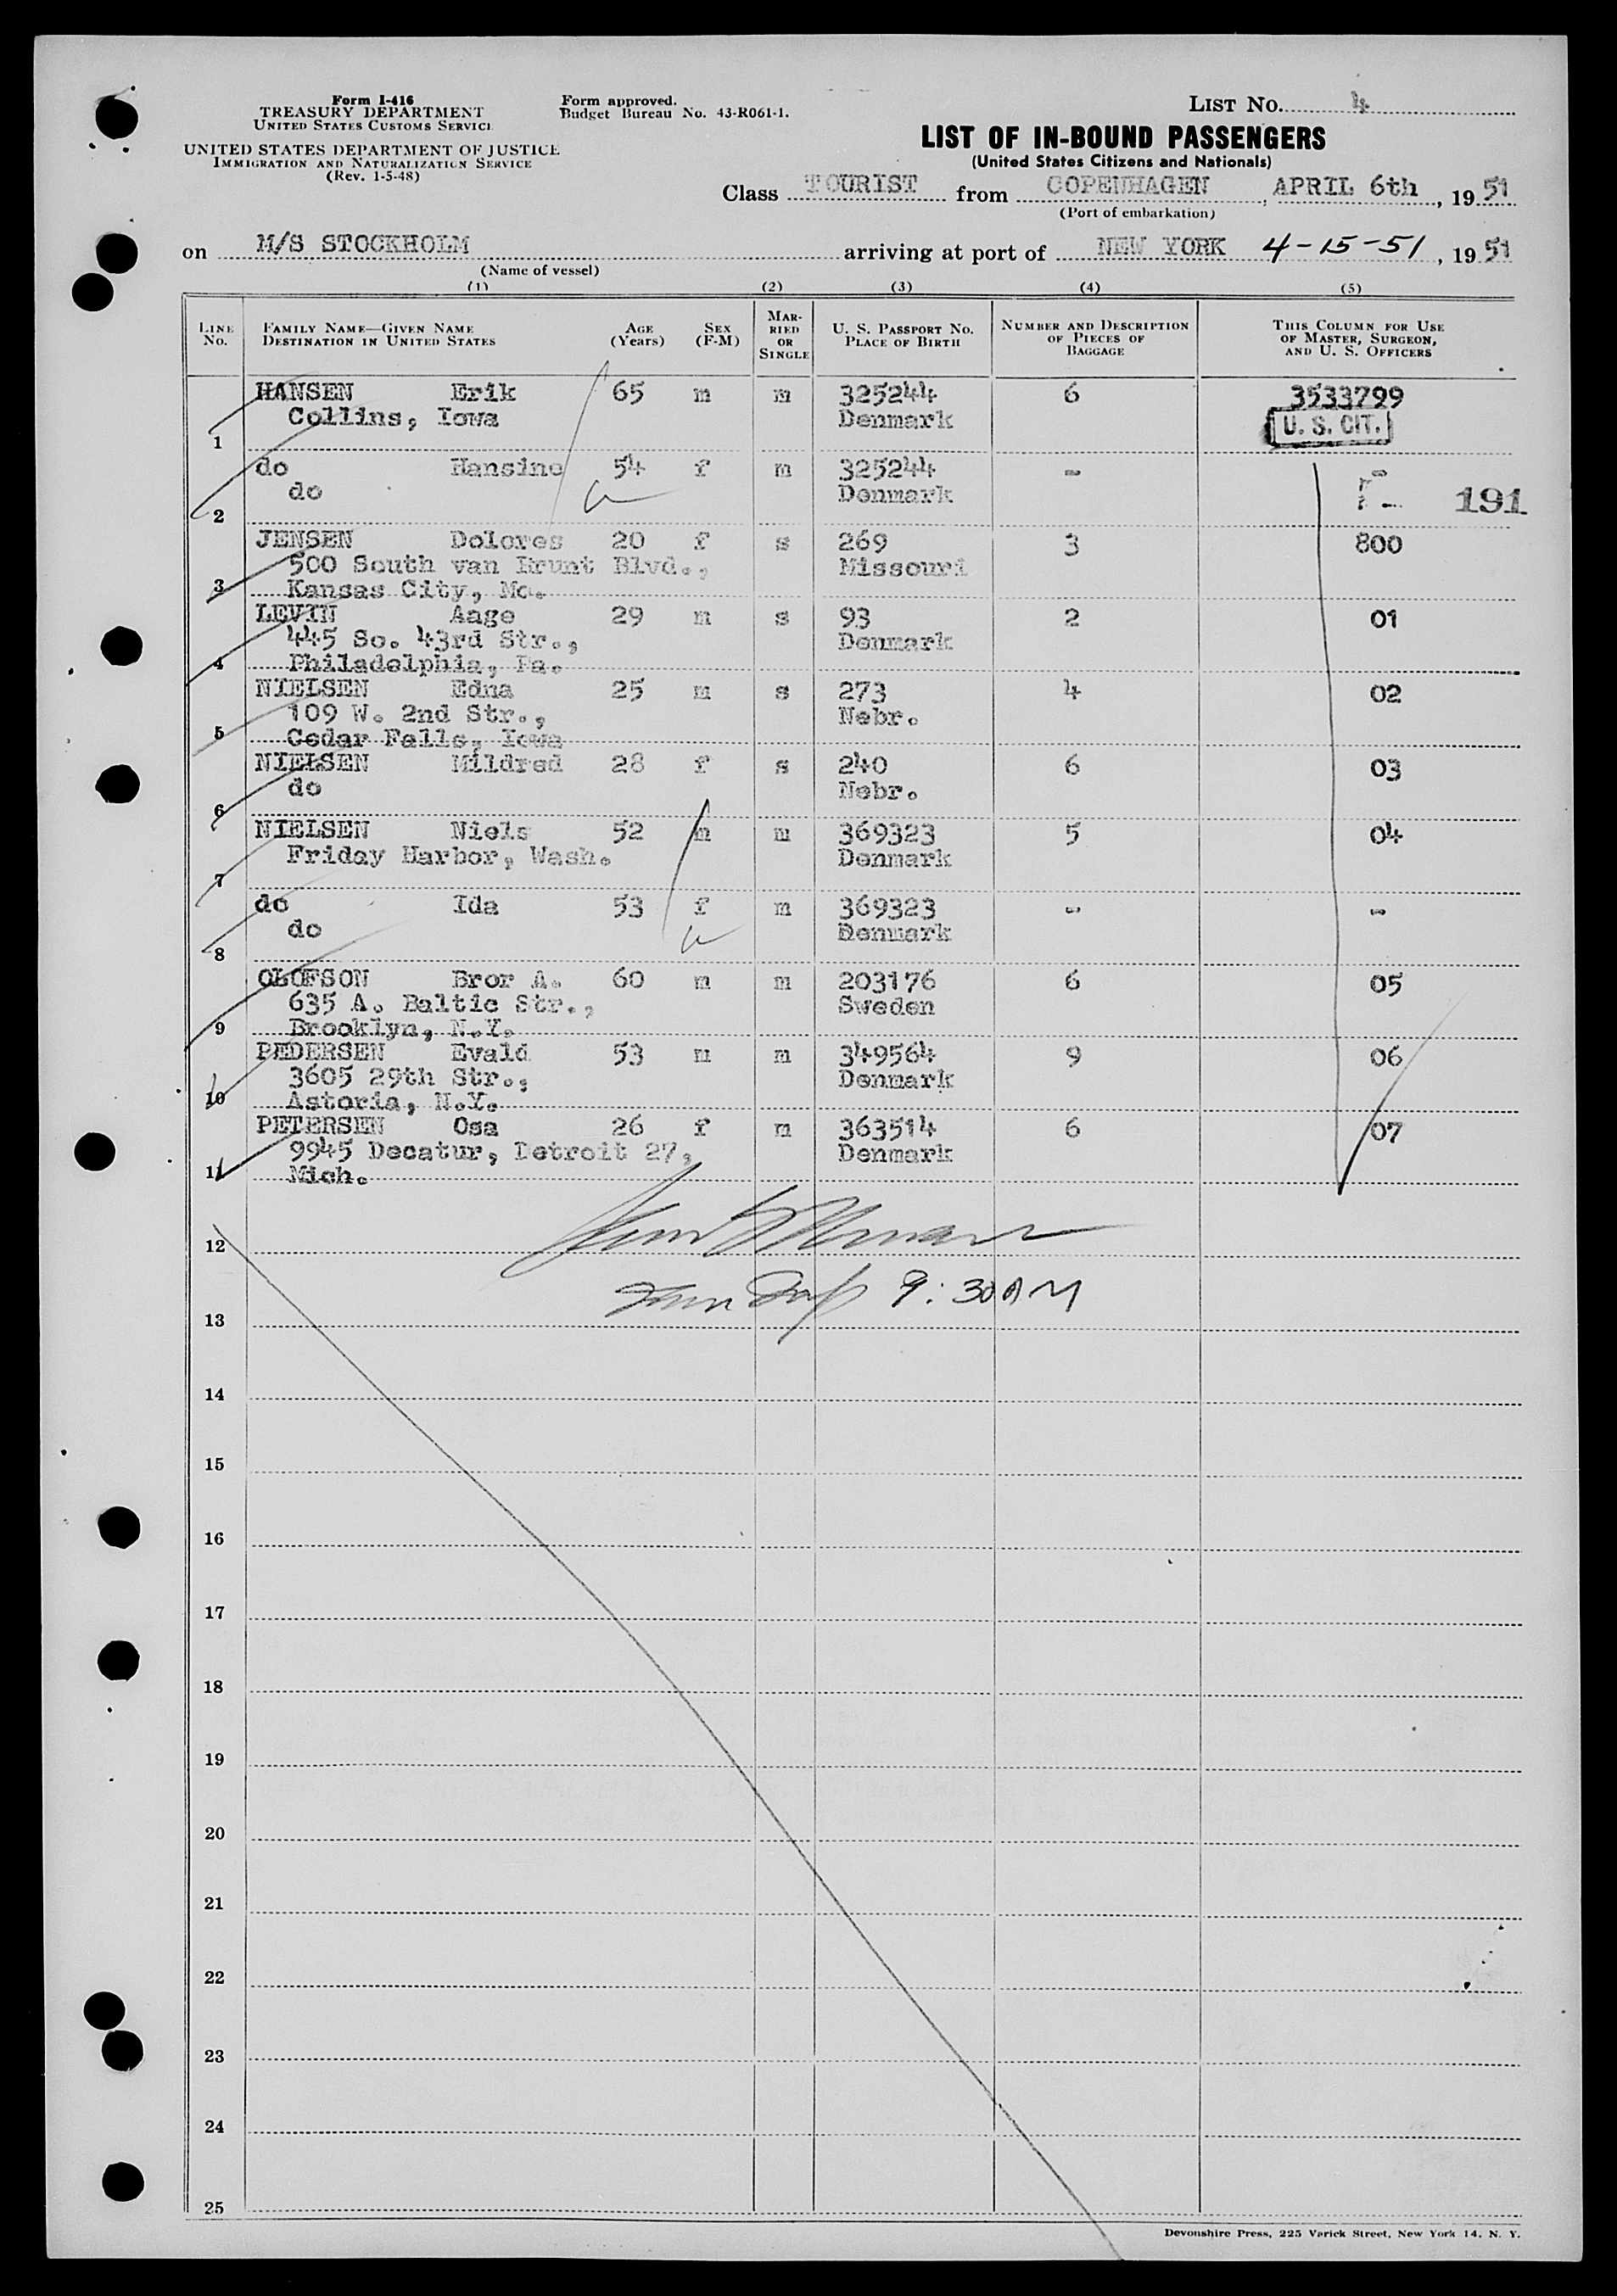 Form I-416
TREASURY DEPARTMENT
UNITED STATES CUSTOMS SERVICE
UNITED STATES DEPARTMENT OF JUSTICE
IMMIGRATION AND NATURALIZATION SERVICE
(Rev. 1-5-48)
Form approved.
Budget Bureau No. 43-R061-1.
LIST No. 4
LIST OF IN-BOUND PASSENGERS
(United States Citizens and Nationals)
Class TOURIST from COPENHAGEN, APRIL 6th, 1951
(Port of embarkation)
on M/S STOCKHOLM arriving at port of NEW YORK 4-15-51, 1951
(Name of vessel)
(1) (2) (3) (4) (5)
LINE No. FAMILY NAME—GIVEN NAME DESTINATION IN UNITED STATES AGE (Years) SEX (F-M) MARRIED OR SINGLE U. S. PASSPORT No. PLACE OF BIRTH NUMBER AND DESCRIPTION OF PIECES OF BAGGAGE THIS COLUMN FOR USE OF MASTER, SURGEON, AND U. S. OFFICERS
HANSEN Erik 65 m m 325244 6 3533799
Collins, Iowa Denmark U. S. CIT.
1
do Hansine 54 f m 325244 - -
do Denmark 191
2
JENSEN Dolores 20 f s 269 3 800
500 South van Brunt Blvd., Missouri
3 Kansas City, Mo.
LEVIN Aage 29 m s 93 2 01
445 So. 43rd Str., Denmark
4 Philadelphia, Pa.
NIELSEN Edna 25 m s 273 4 02
109 W. 2nd Str., Nebr.
5 Cedar Falls, Iowa
NIELSEN Mildred 28 f s 240 6 03
do Nebr.
6
NIELSEN Niels 52 m m 369323 5 04
Friday Harbor, Wash. Denmark
7
do Ida 53 f m 369323 - -
do Denmark
8
OLOFSON Bror A. 60 m m 203176 6 05
635 A. Baltic Str., Sweden
9 Brooklyn, N.Y.
PEDERSEN Evald 53 m m 349564 9 06
3605 29th Str., Denmark
10 Astoria, N.Y.
PETERSEN Osa 26 f m 363514 6 07
9945 Decatur, Detroit 27, Denmark
11 Mich.
12
9:30 AM
13
14
15
16
17
18
19
20
21
22
23
24
25
Devonshire Press, 225 Varick Street, New York 14, N. Y.